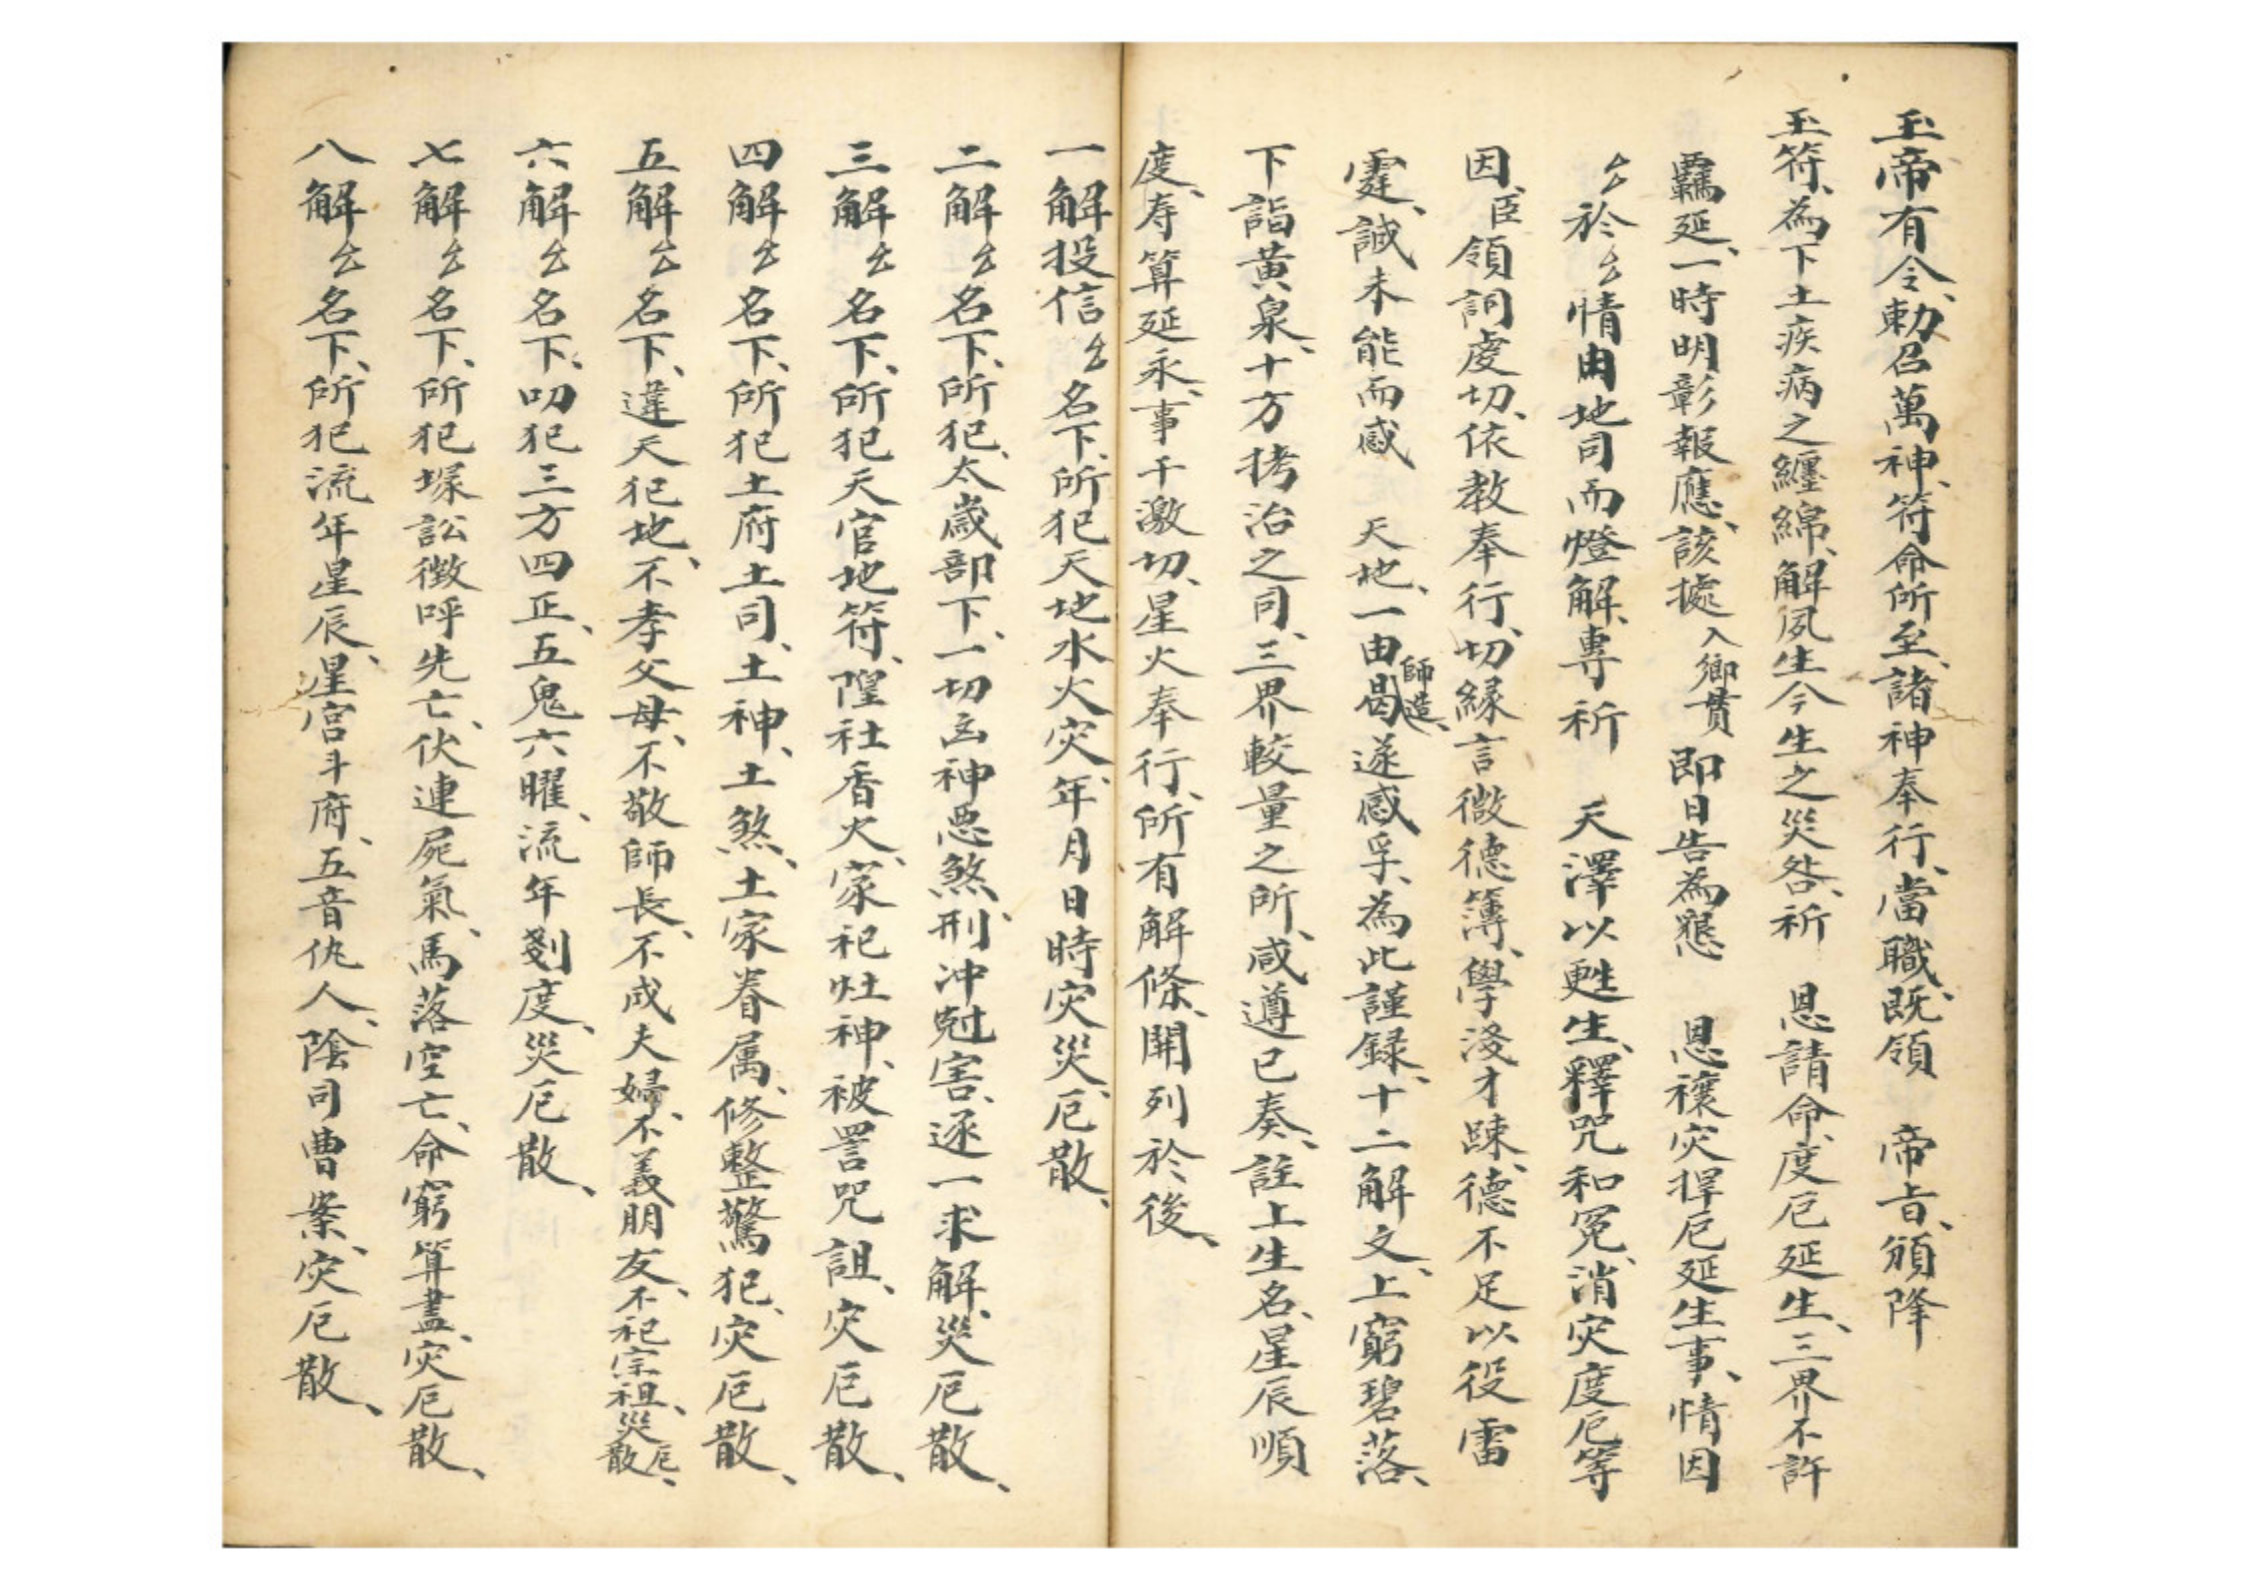 玉帝有令、勅召萬神、符命所至、諸神奉行、當職既領　帝旨、頒降
玉符、為下土疾病之纏綿、解夙生今生之災咎、祈　恩請命、度厄延生、三界不許
羈延、一時明彰報應、該據入鄉貫　即日告為懇　恩禳灾捍厄延生事、情因
厶於厶情由地司而燈解、專祈　天澤以甦生、釋咒和冤、消灾度厄等
因、臣領詞虔切、依教奉行、切緣言微德簿、學淺才踈、德不足以役雷
霆、誠未能而感　天地、一由曷師造、遂感孚、為此謹録、十二解文、上窮碧落、
下詣黄泉、十方拷治之司、三界較量之所、咸遵已奏、註上生名、星辰順
度、寿算延永、事干激切、星火奉行、所有解條、開列於後、
一解投信厶名下、所犯天地水火灾、年月日時灾災、厄散、
二解厶名下、所犯、太歲部下、一切凶神悪煞、刑冲尅害、逐一求解、災厄散、
三解厶名下、所犯天官地符、隍社香火、家祀灶神、被詈咒詛、灾厄散、
四解厶名下、所犯土府土司、土神、土煞、土家眷属、修整驚犯、灾厄散、
五解厶名下、違天犯地、不孝父母、不敬師長、不成夫婦、不義朋友、不祀宗祖、災厄散、
六解厶名下、叨犯三方四正、五鬼六曜、流年剗度、災厄散、
七解厶名下、所犯塚訟徵呼先亡、伏連屍氣、馬落空亡、命窮算盡、灾厄散、
八解厶名下、所犯流年星辰、星宫斗府、五音仇人、陰司曹案、灾厄散、